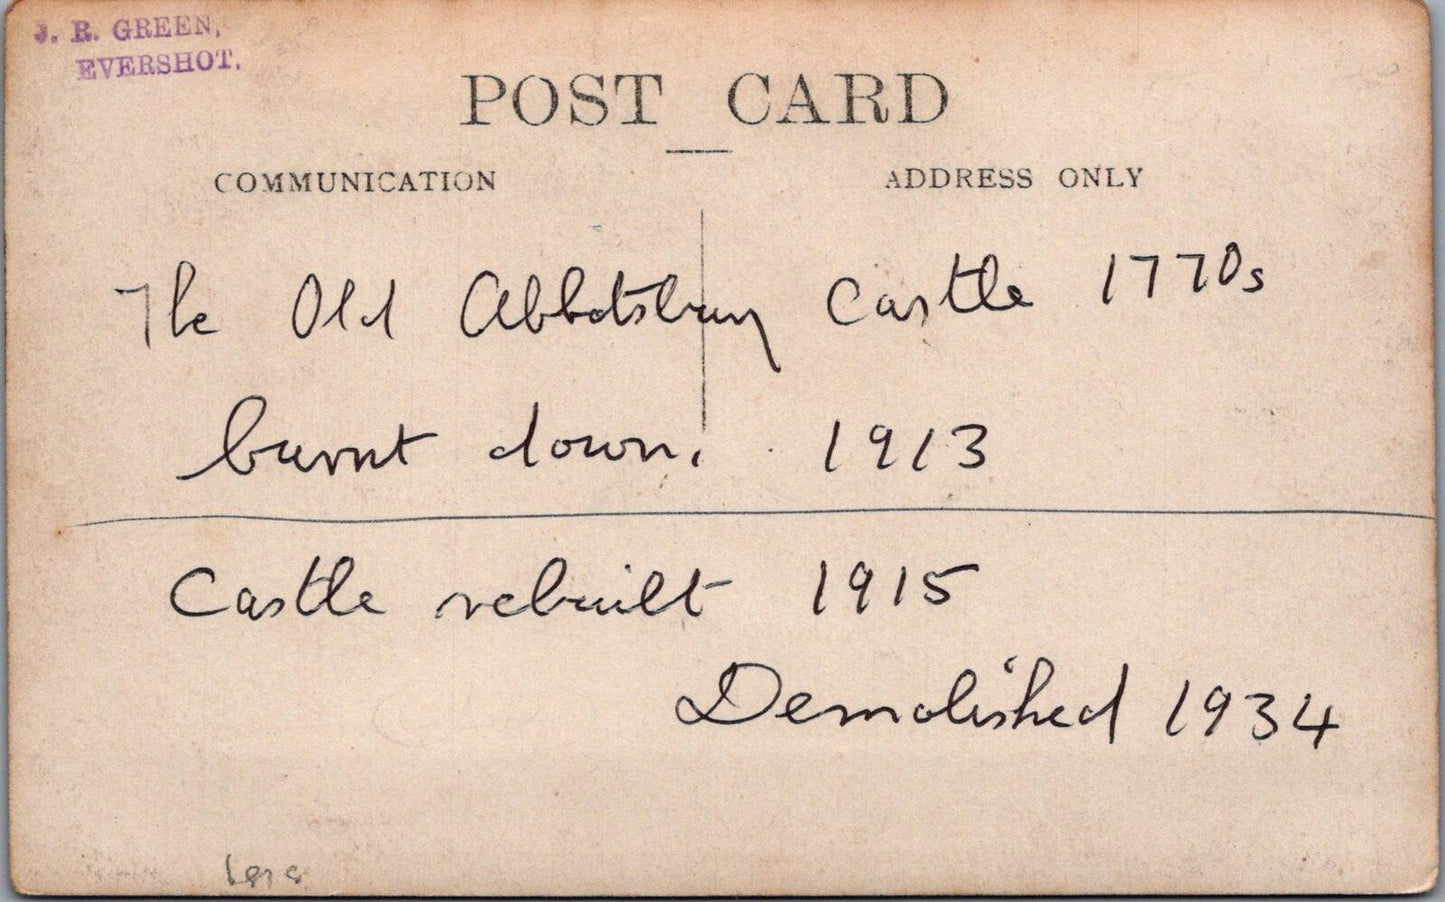 J. R. GREEN,
EVERSHOT.
POST CARD
COMMUNICATION
ADDRESS ONLY
The Old Abbotsbury Castle 1770s
burnt down. 1913
Castle rebuilt 1915
Demolished 1934